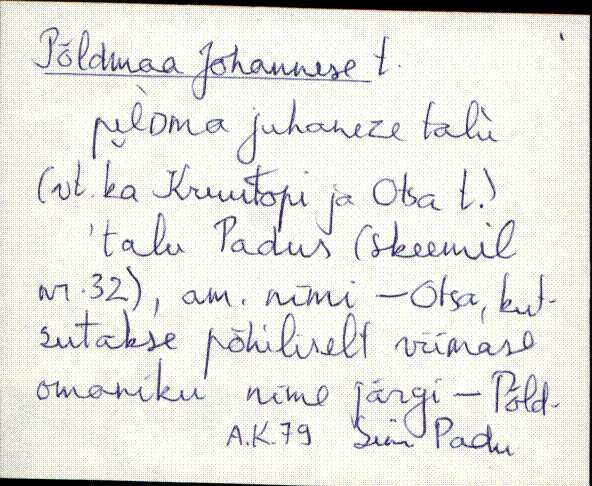 Põldmaa Johannese t.
pe̮lᴅma juhaneze talù
(vt. ka Kruutopi ja Otsa t.)
'talu Padus (skeemil
nr. 32), am. nimi – Otsa, kut-
sutakse põhiliselt viimase
omaniku nime järgi – Põld-
A.K.79 Simi Padu